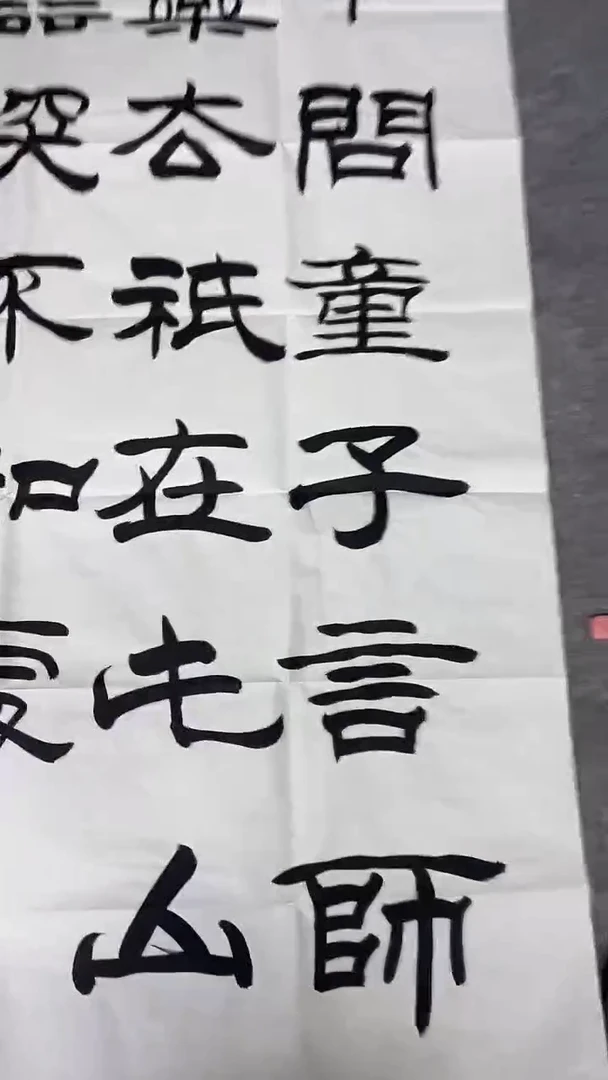 問童子言師
去祇在此山
深不知處